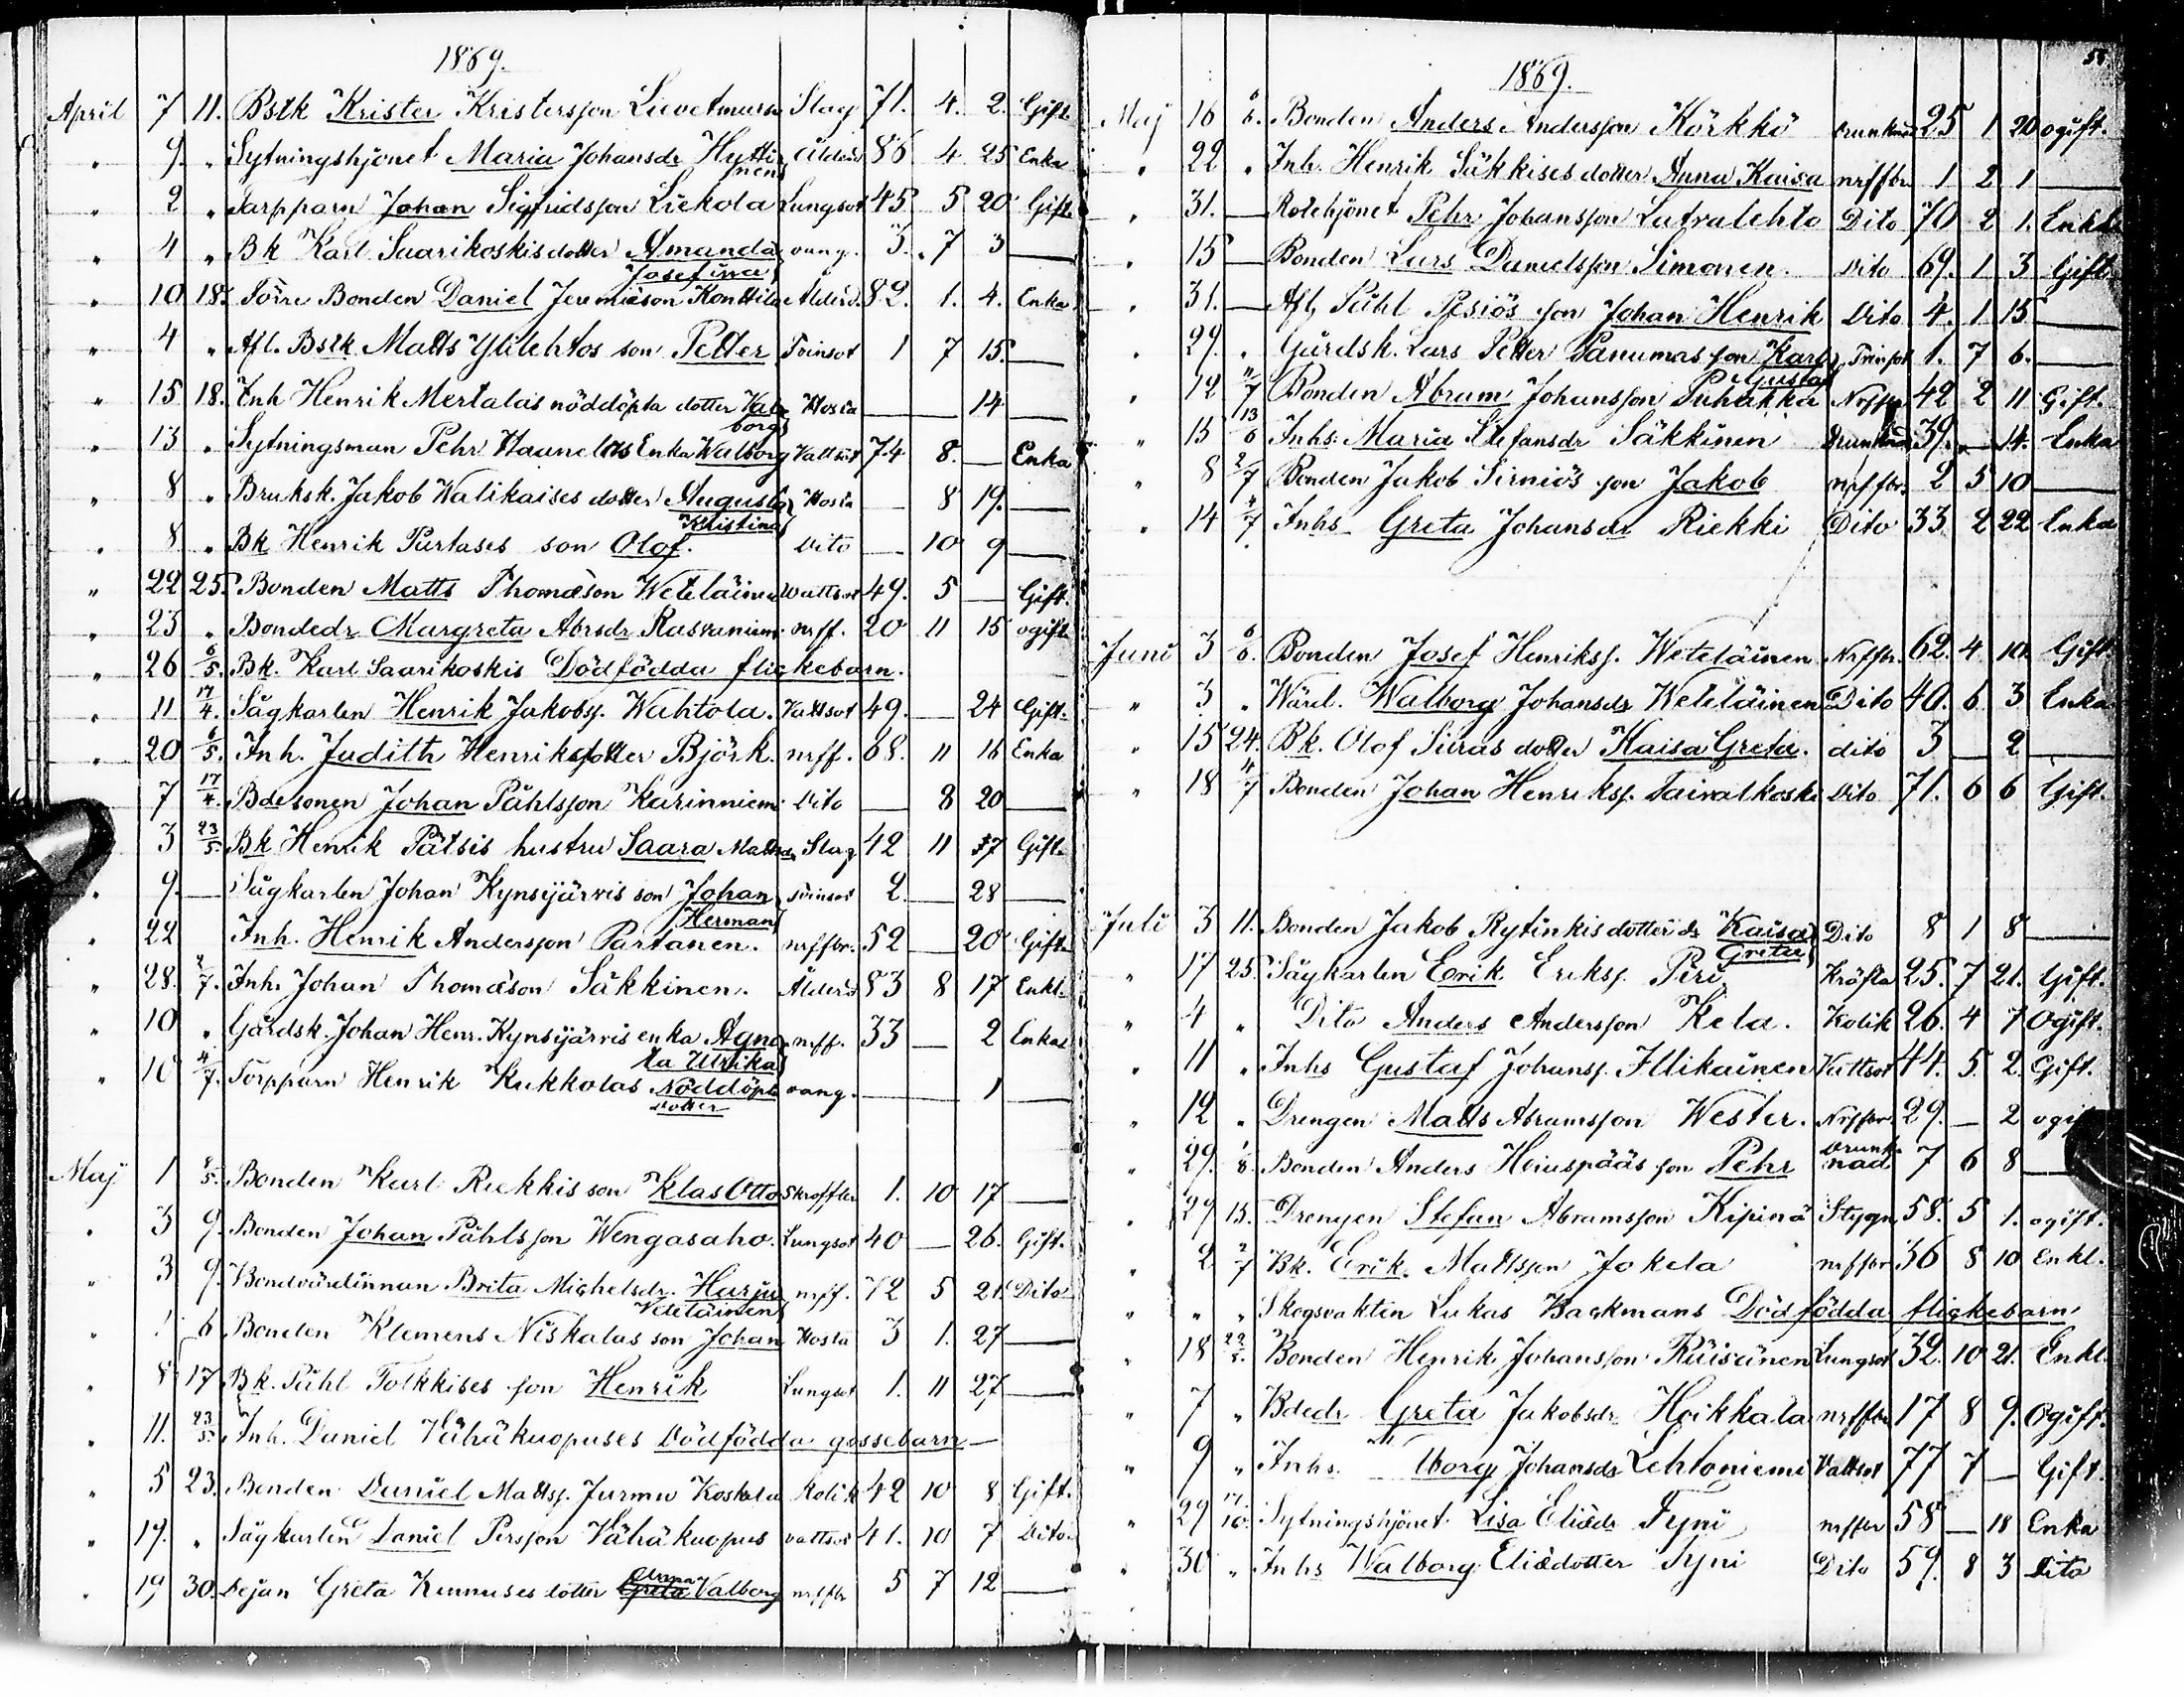 1869.
April 7 11. Bstk Krister Kristersson Slag 71. 4. 2. Gift
" 9. " Sytningshjonet Maria Johansdr Hytti nen Ålderd 86 4 25 Enka
" 2 " Torpparn Johan Sigfridsson Liekola Lungsot 45 5 20 Gift
" 4 " Bk Karl Saarikoskis dotter Amanda Josefina oang. 3. 7 3 —
" 10 18. Förre Bonden Daniel Jeremiæson Konttila Ålderd. 82. 1. 4. Enka
" 4 " Afl. Bstk Matts Ylilehtos son Petter Tvinsot 1 7 15. —
" 15 18. Inh Henrik Mertalas nöddöpta dotter Val borg Hosta — — 14 —
" 13 " Sytningsman Pehr Enka Walborg Vattsot 74 8. — Enka
" 8 " Bruksk. Jakob Walikaises dotter Augusta Kristina Hosta — 8 19. —
" 8 " Bk Henrik Purtases son Olof. Dito — 10 9 —
" 22 25. Bonden Matts Thomæson Weteläinen Wattsot 49. 5 — Gift.
" 23 " Bondedr Margreta Abrsdr Rasvaniemi nrff. 20 11 15 ogift
" 26 6/5. Bk. Karl Saarikoskis Dödfödda flickebarn.
" 11 17/4. Sågkarlen Henrik Jakobss. Wahtola. Vattsot 49. — 24 Gift.
" 20 6/5. Inh. Judith Henriksdotter Björk. nrff. 68. 11 16 Enka
" 7 17/4. Bdesonen Johan Påhlsson Karinniemi Dito — 8 20 —
3 23/5. Bk Henrik Pätsis hustru Saara Mattsdr Slag 42 11 Gift.
" 9. — Sågkarlen Johan Kynsijärvis son Johan Herman Tvinsot 2. — 28 —
" 22 Inh. Henrik Andersson Partanen. nrffbr. 52 — 20 Gift.
" 28. 2/7. Inh. Johan Thomæson Säkkinen. Ålderd 83 8 17 Enkl.
" 10 " Gårdsk. Johan Henr. Kynsijärvis enka Agne ta Ulrika nrff. 33 — 2 Enka
" 10 4/7. Torpparn Henrik Kukkolas Nöddöpta dotter oang. — — 1 —
Maj 1 8/5. Bonden Karl Riekkis son Klas Otto 1. 10 17 —
" 3 9. Bonden Johan Påhlsson Wengasaho. Lungsot 40 — 26. Gift.
" 3 9. Bondvärdinnan Brita Michelsdr. Harju Veteläinen nrff. 72 5 21. Dito
" 6 Bonden Klemens Niskalas son Johan Hosta 3 1. 27 —
" 8 17 Bk. Påhl Tolkkises son Henrik Lungsot 1. 11 27 —
" 11. 23/5. Inh. Daniel Vähäkuopuses Dödfödda gossebarn —
" 5 23. Bonden Daniel Matts. Jurmu Koskela Kolik 42 10 8 Gift.
" 19. " Sågkarlen Daniel Persson Vähäkuopus vattsot 41. 10 7 Dito.
" 19 30. Dejan Greta Kinnuses dotter Greta Anna Valborg nrffbr 5 7 12 —
1869.
Maj 16 6/6. Bonden Anders Andersson Körkkö Drunknad 25 1 20 ogift.
" 22 " Inh. Henrik Säkkises dotter Anna Kaisa nrffbr. 1 2 1 —
" 31. — Rotehjonet Pehr Johansson Latvalehto Dito 70 2 1. Enkl
" 15 — Bonden Lars Danielsson Simonen. Dito 69. 1 3 Gift.
" 31. — Afl. Påhl Pesiös son Johan Henrik Dito 4. 1 15 —
" 29. " Gårdsk. Lars Petter Panumas son Karl Gustaf Tvinsot 1. 7 6. —
" 12 4/7 Bonden Abram Johansson Puhakka Nrffbr 42 2 11 Gift.
" 15 13/6 Inhs. Maria Stefansdr Säkkinen Drunknad 39. — 14. Enka
" 8 2/7 Bonden Jakob Sirniös son Jakob nrffbr. 2 5 10 —
" 14 4/7 Inhs Greta Johansdr Riekki Dito 33. 2 22 Enka
Juni 3 6/6. Bonden Josef Henrikss. Weteläinen Nrffbr. 62. 4 10 Gift.
" 3 " Wärd. Walborg Johansdr Weteläinen Dito 40. 6 3 Enka
" 15 24. Bk. Olof Siiras dotter Kaisa Greta. dito 3 — 2 —
" 18 4/7 Bonden Johan Henrikss. Taivalkoski Dito 71. 6 6 Gift.
Juli 3 11. Bonden Jakob Rytinkis dotter Kaisa Greta Dito 8 1 8 —
" 17 25. Sågkarlen Erik Erikss. Piri Kräfta 25. 7 21. Gift.
" 4 " Dito Anders Andersson Kela. Kolik 26. 4 7 Ogift.
" 11 " Inhs Gustaf Johanss. Illikainen Vattsot 44. 5. 2. Gift.
" 12 " Drengen Matts Abramsson Wester. Nrffbr. 29. — 2 ogi
" 29. 1/8. Bonden Anders Heinspääs son Pehr Drunk nad 7 6 8 —
" 29 15. Drengen Stefan Abramsson Kipinä Stygn 58. 5 1. ogift.
" 2 2/7 Bk. Erik. Mattsson Jokela nrffbr 36 8 10 Enkl.
" " " Skogsvakten Lukas Backmans Dödfödda flickebarn
" 18 22/8. Bonden Henrik Johansson Räisänen Lungsot 32. 10 21. Enkl.
" 7 " Bdedr Greta Jakobsdr Heikkala nrffbr 17 8 9. Ogift.
" 9 " Inhs. lborg Johansdr Lehtoniemi Vattsot 77 7 — Gift.
" 29 17/10. Sytningshjonet Lisa Eliædr Tyni nrffbr 58 — 18 Enka
" 30 " Inhs Walborg Eliædotter Tyni Dito 59. 8 3 Dito